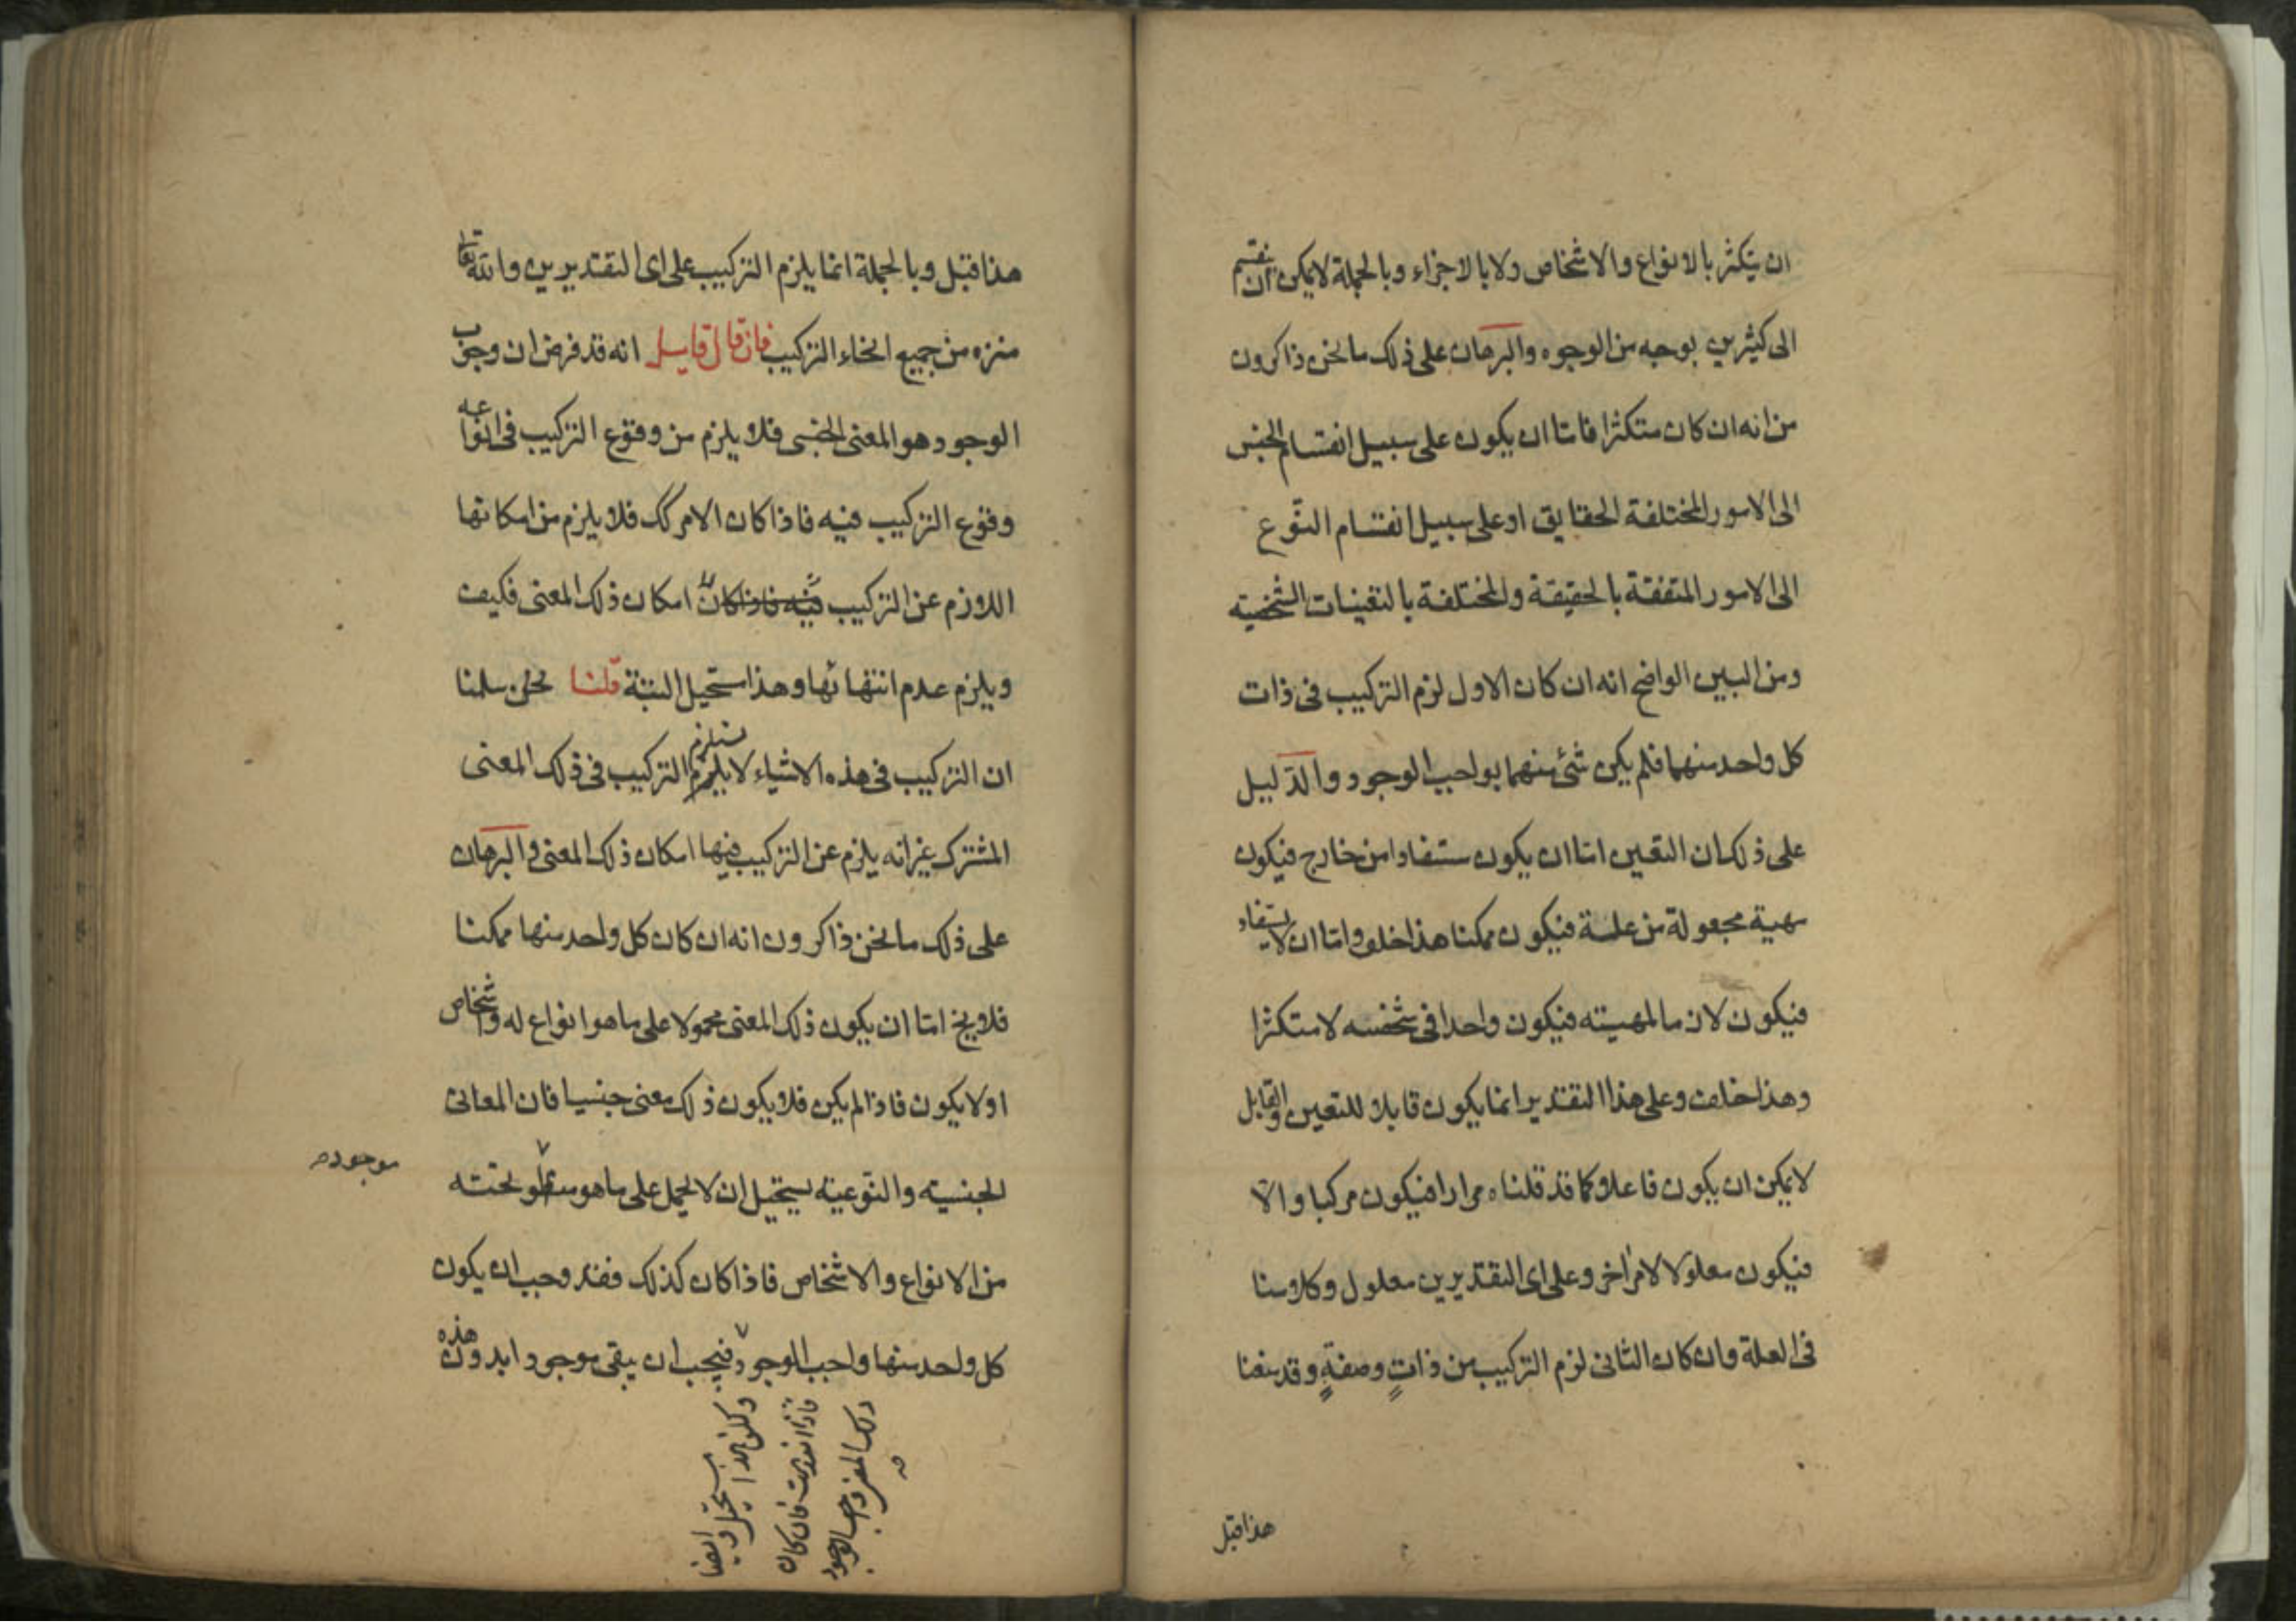 ان يتكثر بالانواع والاشخاص ولا بالاجزاء وبالجملة لا يمكن ان ينقسم
الى كثيرين بوجه من الوجوه والبرهان على ذلك ما نحن ذاكرون
من انه ان كان متكثرا فاما ان يكون على سبيل انقسام الجنس
الى الامور المختلفة الحقايق او على سبيل انقسام النوع
الى الامور المتفقة بالحقيقة والمختلفة بالتعينات الشخصية
ومن البين الواضح انه ان كان الاول لزم التركيب فى ذات
كل واحد منهما فلم يكن شئ منهما بواجب الوجود والدليل
على ذلك ان التعين اما ان يكون مستفادا من خارج فيكون
مهية مجعولة من علة فيكون ممكنا هذا خلف واما ان لا يستفاد
فيكون لازما لمهيته فيكون واحدا فى شخصه لا متكثرا
وهذا خلف وعلى هذا التقدير انما يكون قابلا للتعين والقابل
لا يمكن ان يكون فاعلا كما قد قلناه مرارا فيكون مركبا والا
فيكون معلولا لامر اخر وعلى اى التقديرين معلول وكلامنا
فى العلة وان كان الثانى لزم التركيب من ذات وصفة وقد منعنا
هذا قبل
هذا قبل وبالجملة انما يلزم التركيب على اى التقديرين والله تعا
منزه من جميع انحاء التركيب فان قال قايل انه قد فرض ان وجوب
الوجود هو المعنى الجنسى فلا يلزم من وقوع التركيب فى انواعه
وقوع التركيب فيه فاذا كان الامر كك فلا يلزم من امكانها
اللازم عن التركيب فيه فاذا كان امكان ذلك المعنى فكيف
ويلزم عدم انتهائها وهذا مستحيل البتة قلنا نحن سلمنا
ان التركيب فى هذه الاشياء لا يلزم يستلزم التركيب فى ذلك المعنى
المشترك غير انه يلزم عن التركيب فيها امكان ذلك المعنى والبرهان
على ذلك ما نحن ذاكرون انه ان كان كل واحد منها ممكنا
فلا يخ اما ان يكون ذلك المعنى محمولا على ما هو انواع له واشخاص
او لا يكون فاذا لم يكن فلا يكون ذلك معنى جنسيا فان المعانى
الجنسية والنوعية يستحيل ان لا يحمل على ما هو تحته
موجوده
من الانواع والاشخاص فاذا كان كذلك فقد وجب ان يكون
كل واحد منها واجب الوجود فيجب ان يبقى موجودا بدون هذه
ولكن هذا مستحيل وايضا
فاذا انعدمت فان كان
ذلك المعنى واجب الوجود